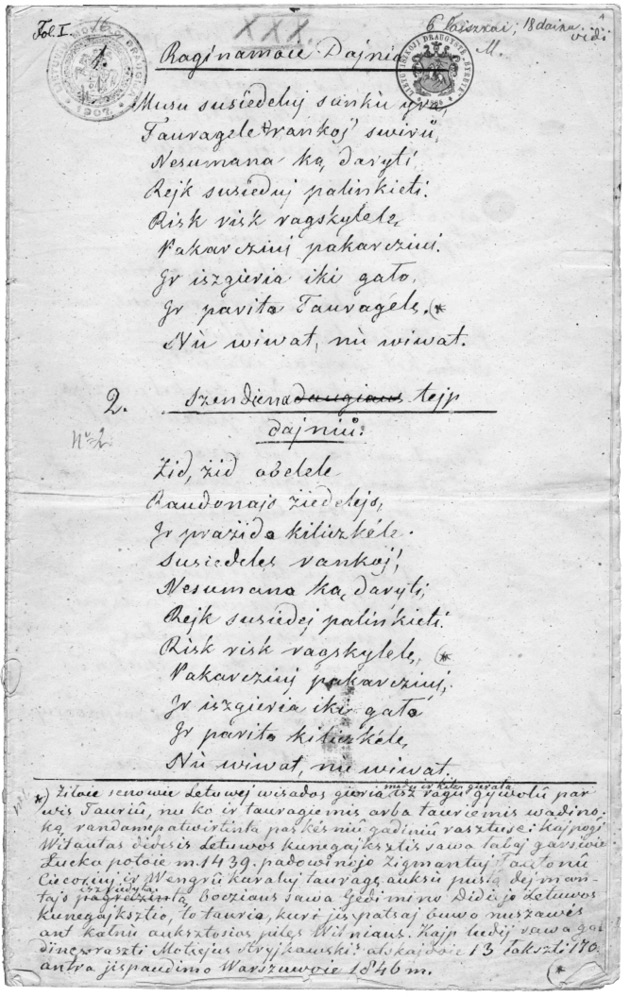 Fol. I. 16 XXX. 6 Paiszkai; 18 dainu
vidi
M.
1. Raginamoie Dajnia
LIETUVIU MOKSLO DRAUGIJA
1907
Musu susiedeluj sunku yra,
Tauragele rankoj' swiru,
Nesumana ką daryti,
Rejk susieduj palinkieti.
Risk risk ragskylelę,
Pakarcziuj pakarcziuj.
Jr iszgieria iki gało,
Jr parita Tauragelę, (*
Nù wiwat, nù wiwat.
2. Szendiena daugiaus tejp
dajniů:
No 2
Żid, żid obelele
Raudonajs żiedelejs,
Jr prażida kiliszkéle.
Susiedeles rankoj',
Nesumana ką daryti,
Rejk susiedej palińkieti.
Risk risk ragskylelę, (*
Pakarcziuj pakarcziuj,
Jr iszgieria iki gało
Jr parita kiliszkéle,
Nù wiwat, nu wiwat.
*) Żiloie senowie Letuwoj wisados gieria isz ragu gywolů par
medu ir kitus gieralus
wis Tauriů, nu ko ir tauragiemis arba tauriemis wadino.
ką randam patwirtinta paskesniu gadiniu rasztuse: kajpogi
Witautas didysis Letuwos kunegajksztis sawa labaj garsioie
Łucka potoie m. 1439. padowinojo Zigmantuj
Ciecoriuj ir Węngrů karaluj tauragę auksu pustą, dejman-
iszrudytą
tajs pagreżintą Bocziaus sawa Gedimino Didioje Letuwos
kunegajksztio, to tauria, kuri jis patsaj buwo nuszawęs
ant kalnu auksztosios pilęs Wilniaus. Kajp ludij sawa ga-
diniu raszti Motiejus Stryjkawskis atskajdoie 13 łakszti 170
antra jispaudimo Warszuwoie 1846 m.
(*